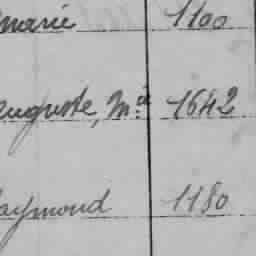 marie 1100
Auguste, Md 1642
Raymond 1180